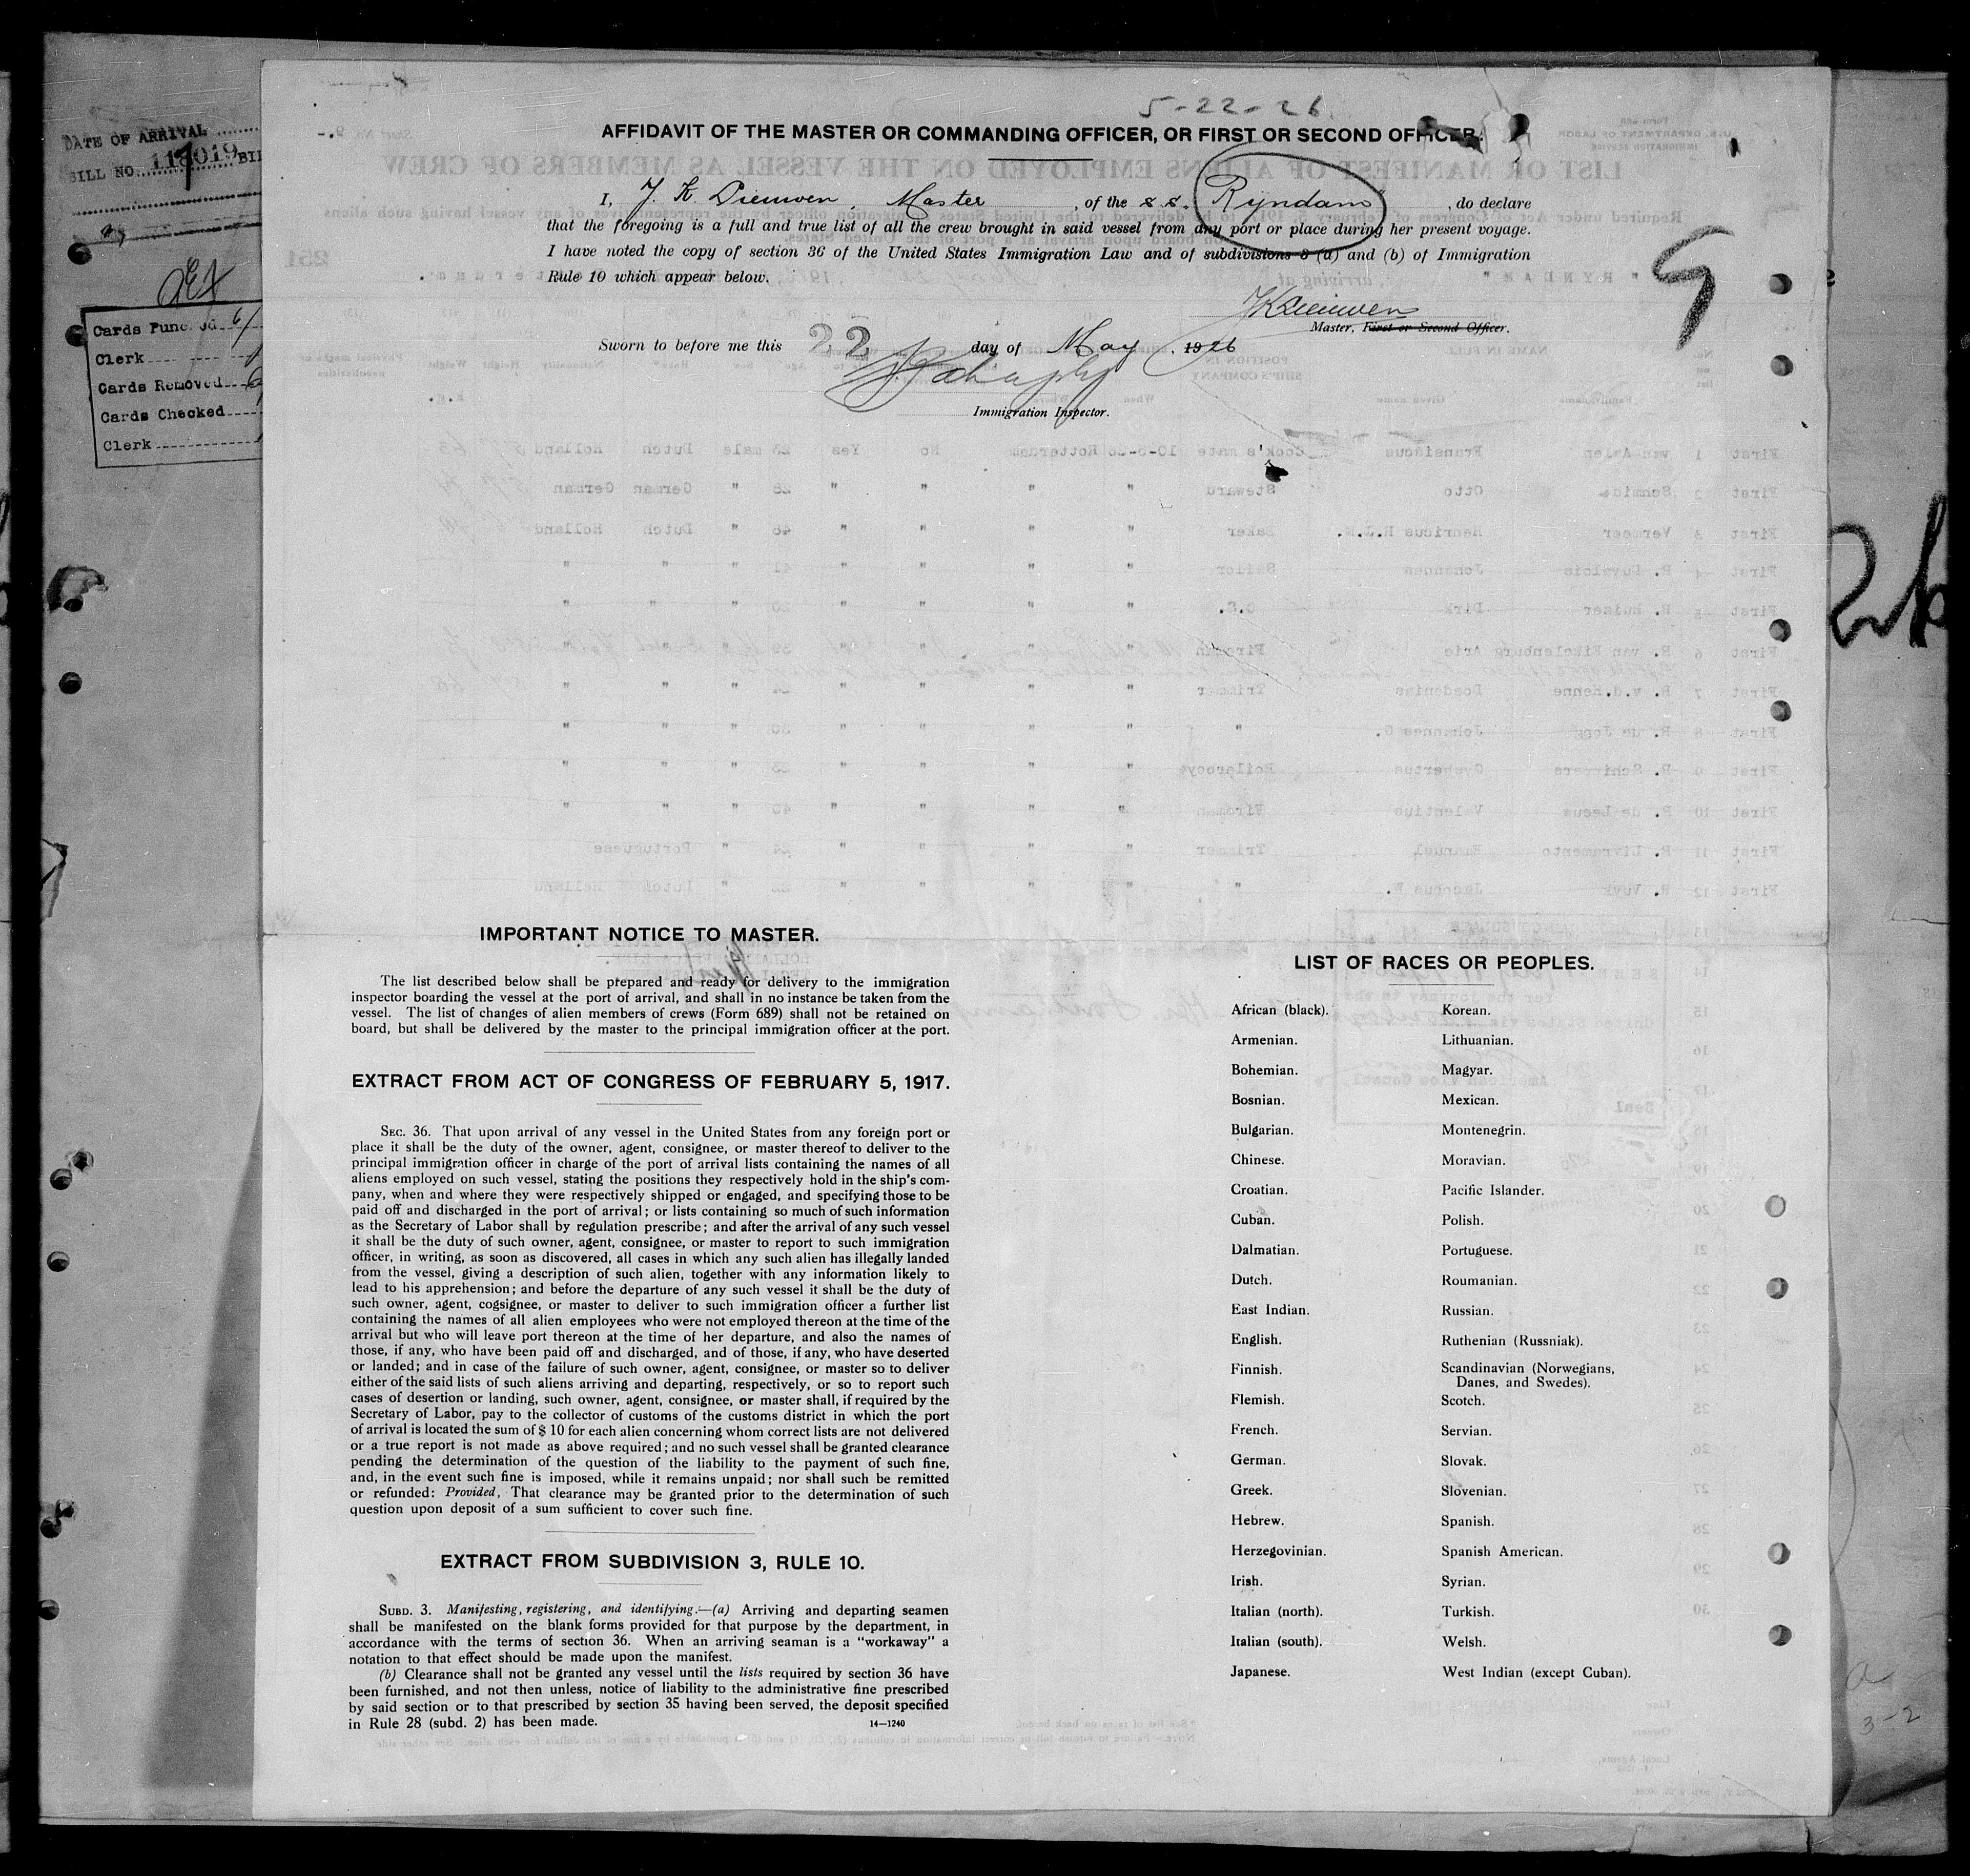 5-22-26
AFFIDAVIT OF THE MASTER OR COMMANDING OFFICER, OR FIRST OR SECOND OFFICER.
I, J. K. , Master , of the s.s. Ryndam , do declare
that the foregoing is a full and true list of all the crew brought in said vessel from any port or place during her present voyage.
I have noted the copy of section 36 of the United States Immigration Law and of subdivisions 8 (a) and (b) of Immigration
Rule 10 which appear below.
Master, First or Second Officer.
Sworn to before me this 22 day of May, 1926
Immigration Inspector.
9
DATE OF ARRIVAL
BILL NO. 118019
Cards
Clerk
Cards Removed
Cards Checked
Clerk
IMPORTANT NOTICE TO MASTER.
The list described below shall be prepared and ready for delivery to the immigration
inspector boarding the vessel at the port of arrival, and shall in no instance be taken from the
vessel. The list of changes of alien members of crews (Form 689) shall not be retained on
board, but shall be delivered by the master to the principal immigration officer at the port.
EXTRACT FROM ACT OF CONGRESS OF FEBRUARY 5, 1917.
SEC. 36. That upon arrival of any vessel in the United States from any foreign port or
place it shall be the duty of the owner, agent, consignee, or master thereof to deliver to the
principal immigration officer in charge of the port of arrival lists containing the names of all
aliens employed on such vessel, stating the positions they respectively hold in the ship's com-
pany, when and where they were respectively shipped or engaged, and specifying those to be
paid off and discharged in the port of arrival; or lists containing so much of such information
as the Secretary of Labor shall by regulation prescribe; and after the arrival of any such vessel
it shall be the duty of such owner, agent, consignee, or master to report to such immigration
officer, in writing, as soon as discovered, all cases in which any such alien has illegally landed
from the vessel, giving a description of such alien, together with any information likely to
lead to his apprehension; and before the departure of any such vessel it shall be the duty of
such owner, agent, cogsignee, or master to deliver to such immigration officer a further list
containing the names of all alien employees who were not employed thereon at the time of the
arrival but who will leave port thereon at the time of her departure, and also the names of
those, if any, who have been paid off and discharged, and of those, if any, who have deserted
or landed; and in case of the failure of such owner, agent, consignee, or master so to deliver
either of the said lists of such aliens arriving and departing, respectively, or so to report such
cases of desertion or landing, such owner, agent, consignee, or master shall, if required by the
Secretary of Labor, pay to the collector of customs of the customs district in which the port
of arrival is located the sum of $10 for each alien concerning whom correct lists are not delivered
or a true report is not made as above required; and no such vessel shall be granted clearance
pending the determination of the question of the liability to the payment of such fine,
and, in the event such fine is imposed, while it remains unpaid; nor shall such be remitted
or refunded: Provided, That clearance may be granted prior to the determination of such
question upon deposit of a sum sufficient to cover such fine.
EXTRACT FROM SUBDIVISION 3, RULE 10.
SUBD. 3. Manifesting, registering, and identifying.—(a) Arriving and departing seamen
shall be manifested on the blank forms provided for that purpose by the department, in
accordance with the terms of section 36. When an arriving seaman is a "workaway" a
notation to that effect should be made upon the manifest.
(b) Clearance shall not be granted any vessel until the lists required by section 36 have
been furnished, and not then unless, notice of liability to the administrative fine prescribed
by said section or to that prescribed by section 35 having been served, the deposit specified
in Rule 28 (subd. 2) has been made.
14—1240
LIST OF RACES OR PEOPLES.
African (black).
Armenian.
Bohemian.
Bosnian.
Bulgarian.
Chinese.
Croatian.
Cuban.
Dalmatian.
Dutch.
East Indian.
English.
Finnish.
Flemish.
French.
German.
Greek.
Hebrew.
Herzegovinian.
Irish.
Italian (north).
Italian (south).
Japanese.
Korean.
Lithuanian.
Magyar.
Mexican.
Montenegrin.
Moravian.
Pacific Islander.
Polish.
Portuguese.
Roumanian.
Russian.
Ruthenian (Russniak).
Scandinavian (Norwegians,
Danes, and Swedes).
Scotch.
Servian.
Slovak.
Slovenian.
Spanish.
Spanish American.
Syrian.
Turkish.
Welsh.
West Indian (except Cuban).
3-2